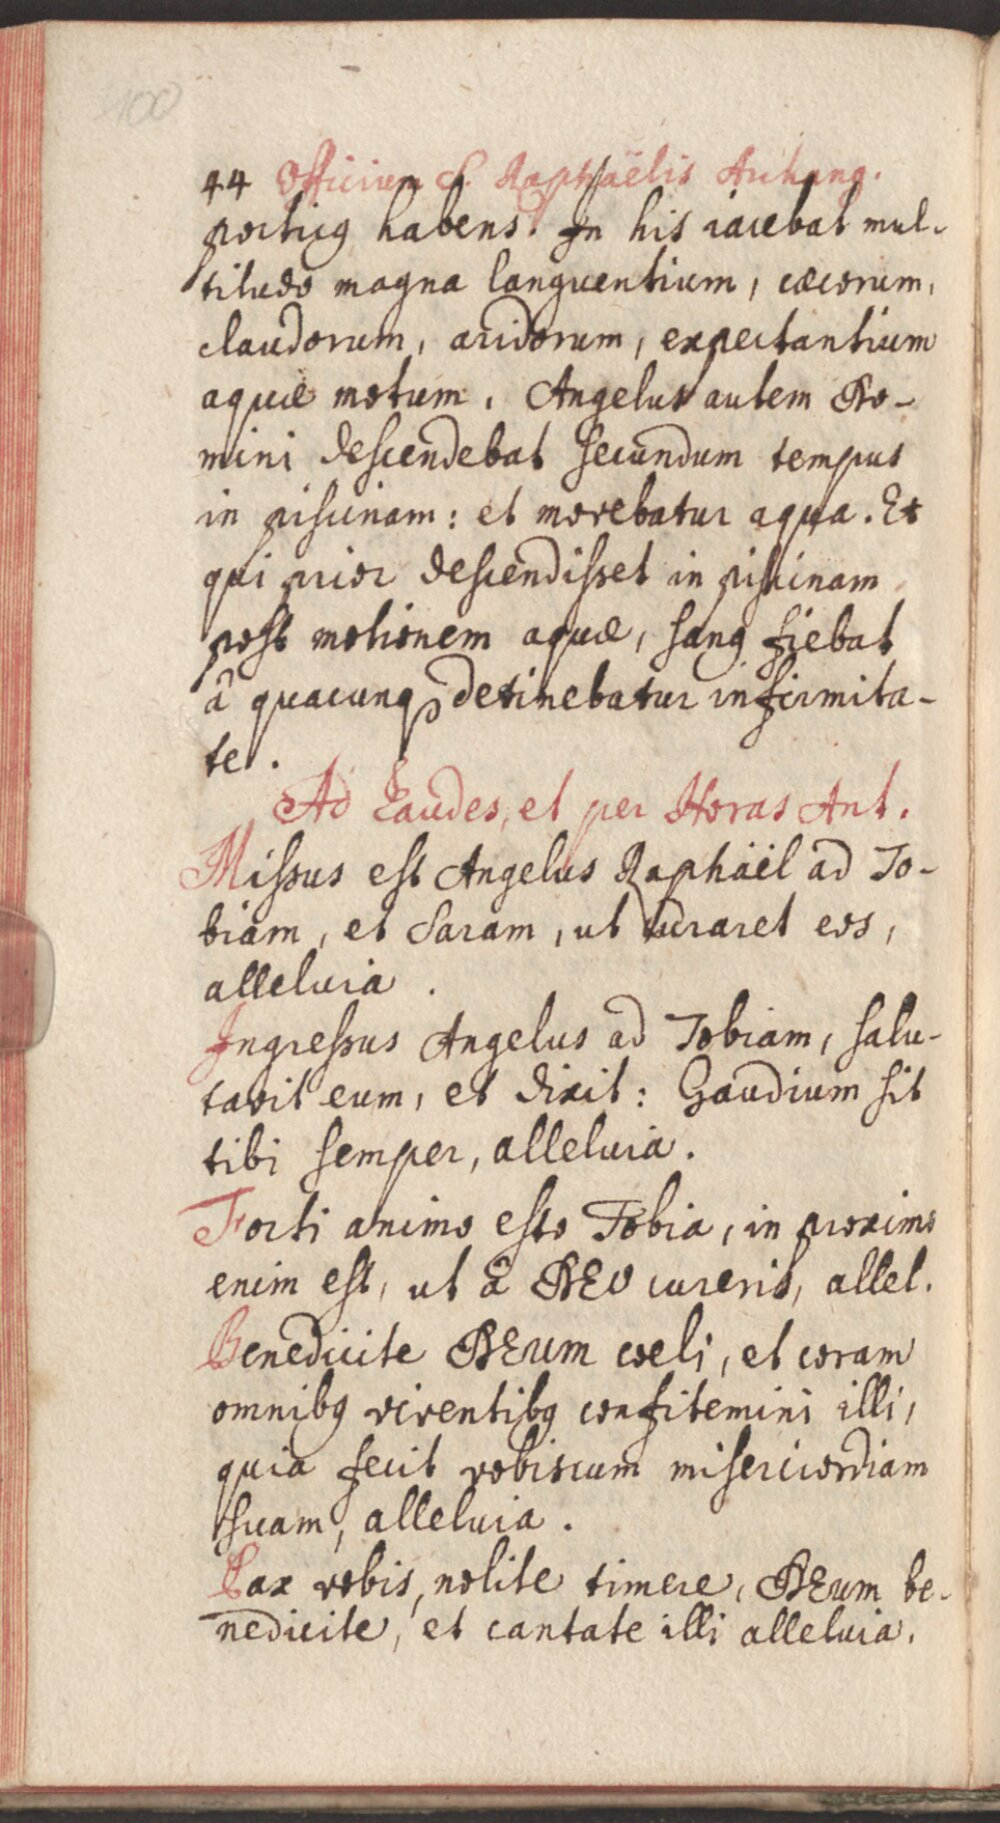 100
44 Officium S. Raphaëlis Archang.
porticꝰ habens. In his iacebat mul-
titudo magna languentium, cæcorum,
claudorum, aridorum, expectantium
aquæ motum. Angelus autem Do-
mini descendebat secundum tempus
in piscinam: et movebatur aqua. Et
qui prior descendisset in piscinam
post motionem aquæ, sanꝰ fiebat
â quacunqꝫ detinebatur infirmita-
te.
Ad Laudes, et per Horas Ant.
Missus est Angelus Raphaël ad To-
biam, et Saram, ut curaret eos,
alleluia.
Ingressus Angelus ad Tobiam, salu-
tavit eum, et dixit: Gaudium sit
tibi semper, alleluia.
Forti animo esto Tobia, in proximo
enim est, ut â DEO cureris, allel.
Benedicite DEum cœli, et coram
omnibꝰ viventibꝰ confitemini illi,
quia fecit vobiscum misericordiam
suam, alleluia.
Pax vobis, nolite timere, DEum be-
nedicite, et cantate illi alleluia.